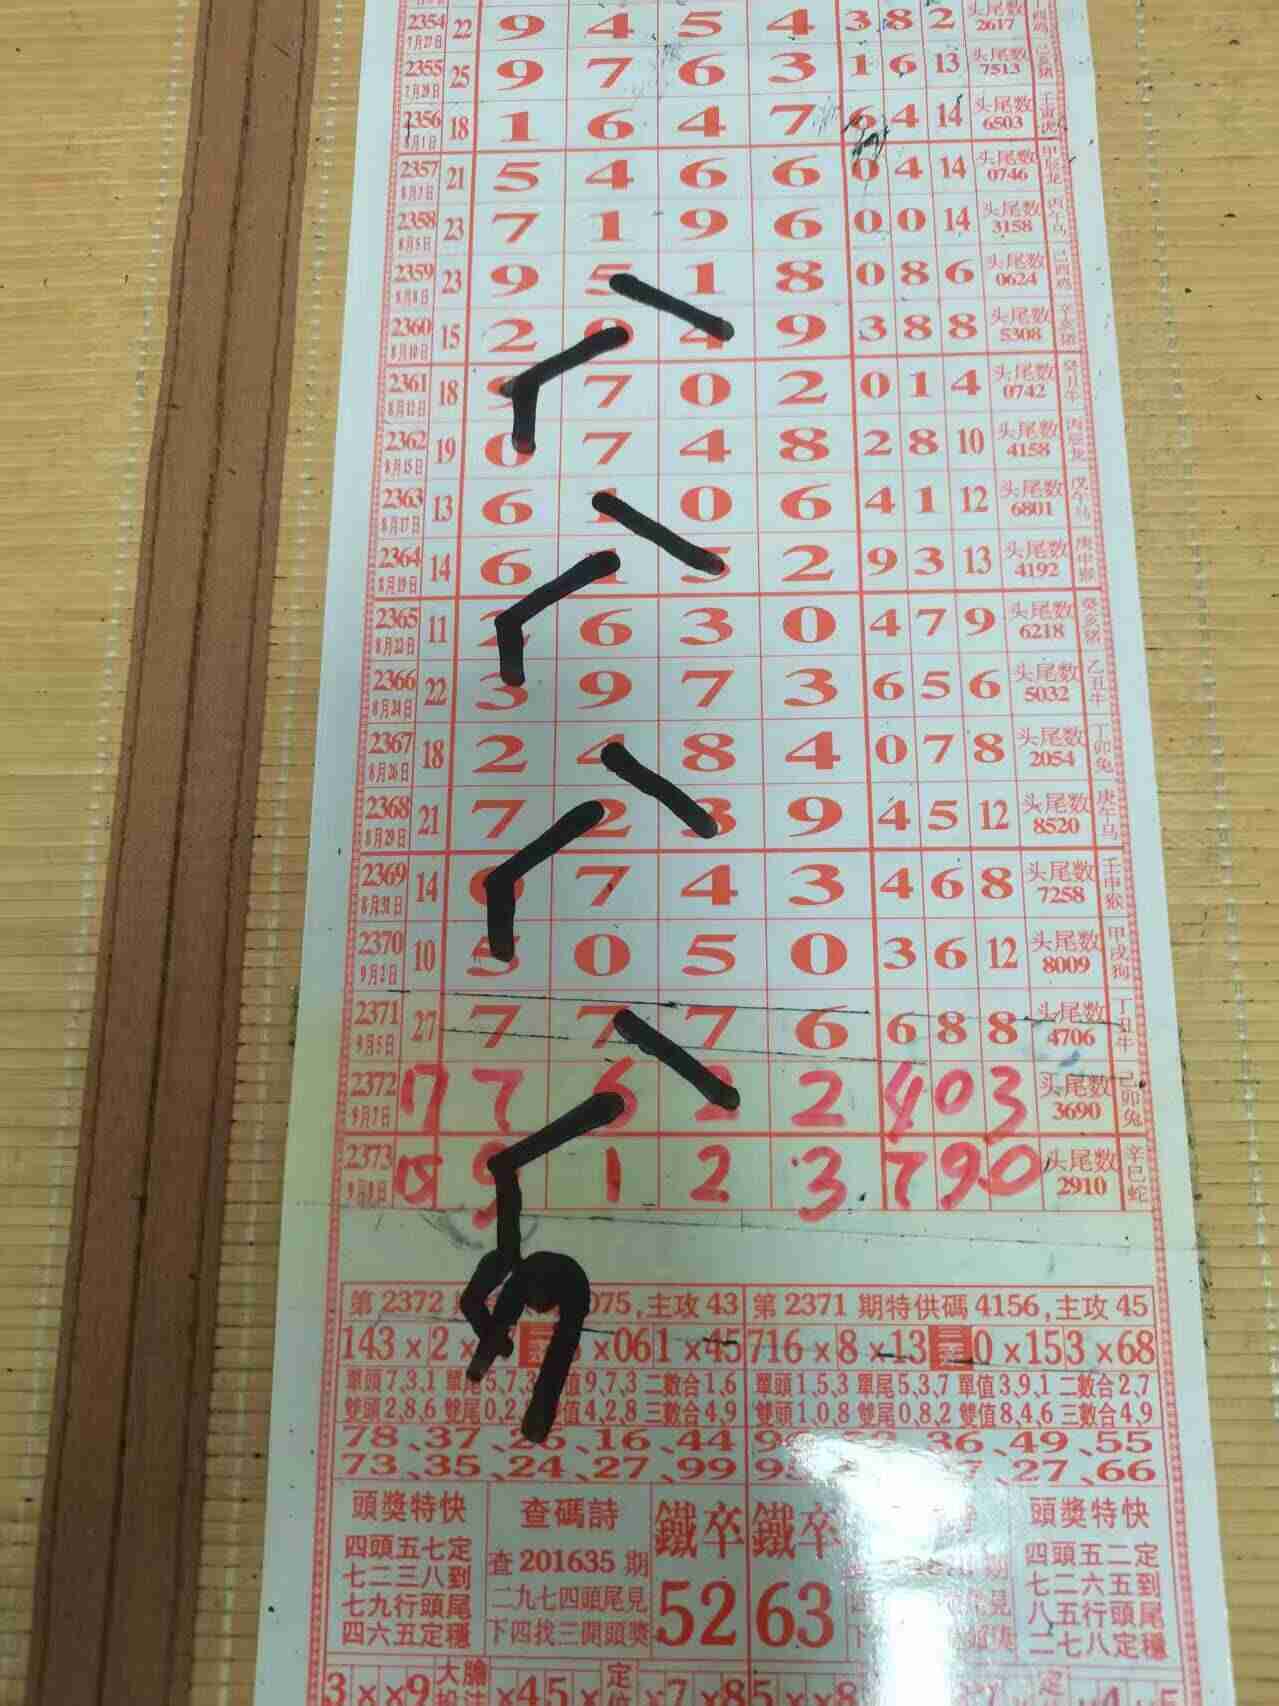 2354 22 9 4 5 4 3 8 2 头尾数
7月27日 2617
2355 25 9 7 6 3 1 6 13 头尾数
7月29日 7513
2356 18 1 6 4 7 6 4 14 头尾数
8月1日 6503
2357 21 5 4 6 6 0 4 14 头尾数 甲辰龙
8月3日 0746
2358 23 7 1 9 6 0 0 14 头尾数 丙午马
8月5日 3158
2359 23 9 5 1 8 0 8 6 头尾数 己酉鸡
8月8日 0624
2360 15 2 4 9 3 8 8 头尾数 辛亥猪
8月10日 5308
2361 18 9 7 0 2 0 1 4 头尾数 癸丑牛
8月12日 0742
2362 19 0 7 4 8 2 8 10 头尾数 丙辰龙
8月15日 4158
2363 13 6 1 0 6 4 1 12 头尾数 戊午马
8月17日 6801
2364 14 6 1 5 2 9 3 13 头尾数 庚申猴
8月19日 4192
2365 11 2 6 3 0 4 7 9 头尾数 癸亥猪
8月22日 6218
2366 22 3 9 7 3 6 5 6 头尾数 乙丑牛
8月24日 5032
2367 18 2 4 8 4 0 7 8 头尾数 丁卯兔
8月26日 2054
2368 21 7 2 3 9 4 5 12 头尾数 庚午马
8月29日 8520
2369 14 0 7 4 3 4 6 8 头尾数 壬申猴
8月31日 7258
2370 10 5 0 5 0 3 6 12 头尾数 甲戌狗
9月2日 8009
2371 27 7 7 7 6 6 8 8 头尾数 丁丑牛
9月5日 4706
2372 17 7 6 2 2 4 0 3 头尾数 己卯兔
9月7日 3690
2373 15 9 1 2 3 7 9 0 头尾数 辛巳蛇
9月8日 2910
9
第 2372 075,主攻 43 第 2371 期特供碼 4156,主攻 45
143×2× ×061×45 716×8×13 0×153×68
單頭7,3,1 單尾5,7,3 值9,7,3 二數合1,6 單頭1,5,3 單尾5,3,7 單值3,9,1 二數合2,7
雙頭2,8,6 雙尾0,2 值4,2,8 三數合4,9 雙頭1,0,8 雙尾0,8,2 雙值8,4,6 三數合4,9
78、37、26、16、44 36、49、55
73、35、24、27、99 27、66
頭獎特快 查碼詩 鐵卒 鐵卒 頭獎特快
四頭五七定 查 201635 期 四頭五二定
七二三八到 二九七四頭尾見 52 63 七二六五到
七九行頭尾 下四找三開頭獎 八五行頭尾
四六五定穩 二七八定穩
3××9 大膽 ×45 定位 ×7×8